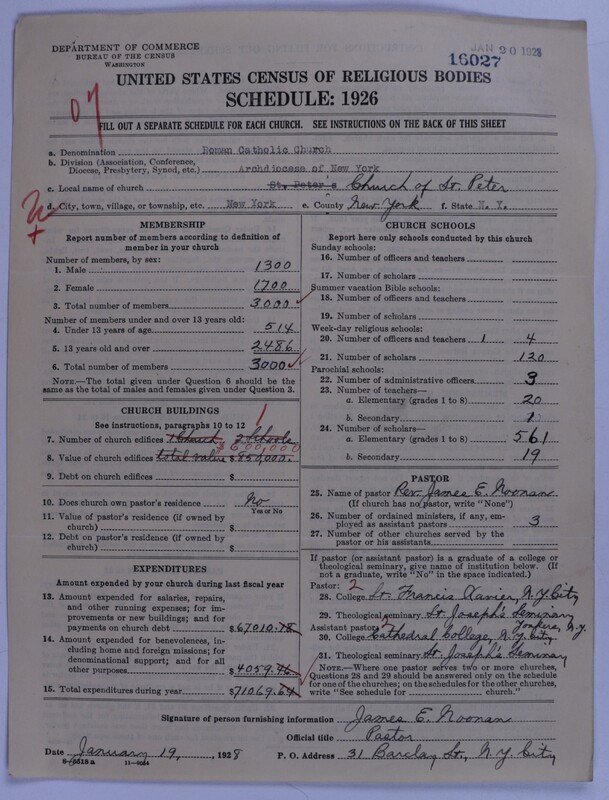 DEPARTMENT OF COMMERCE
BUREAU OF THE CENSUS
WASHINGTON
JAN 20 1928
16027
UNITED STATES CENSUS OF RELIGIOUS BODIES
SCHEDULE: 1926
07
FILL OUT A SEPARATE SCHEDULE FOR EACH CHURCH. SEE INSTRUCTIONS ON THE BACK OF THIS SHEET
a. Denomination Roman Catholic Church
b. Division (Association, Conference,
Diocese, Presbytery, Synod, etc.) Archdiocese of New York
c. Local name of church St. Peter's Church of St. Peter
d. City, town, village, or township, etc. New York e. County New York f. State N. Y.
MEMBERSHIP
Report number of members according to definition of
member in your church
Number of members, by sex:
1. Male 1300
2. Female 1700
3. Total number of members 3000
Number of members under and over 13 years old:
4. Under 13 years of age 514
5. 13 years old and over 2486
6. Total number of members 3000
NOTE.—The total given under Question 6 should be
the same as the total of males and females given under Question 3.
CHURCH BUILDINGS
See instructions, paragraphs 10 to 12
1
7. Number of church edifices 1 Church 2 Schools
$600,000
8. Value of church edifices total value $850,000.
9. Debt on church edifices $
10. Does church own pastor's residence No
Yes or No
11. Value of pastor's residence (if owned by
church) $
12. Debt on pastor's residence (if owned by
church) $
EXPENDITURES
Amount expended by your church during last fiscal year
13. Amount expended for salaries, repairs,
and other running expenses; for im-
provements or new buildings; and for
payments on church debt $67010.18
14. Amount expended for benevolences, in-
cluding home and foreign missions; for
denominational support; and for all
other purposes $4059.46
15. Total expenditures during year $71069.64
CHURCH SCHOOLS
Report here only schools conducted by this church
Sunday schools:
16. Number of officers and teachers
17. Number of scholars
Summer vacation Bible schools:
18. Number of officers and teachers
19. Number of scholars
Week-day religious schools:
20. Number of officers and teachers 1 4
21. Number of scholars 120
Parochial schools:
22. Number of administrative officers 3
23. Number of teachers—
a. Elementary (grades 1 to 8) 20
b. Secondary 1
24. Number of scholars—
a. Elementary (grades 1 to 8) 561
b. Secondary 19
PASTOR
25. Name of pastor Rev. James E. Noonan
(If church has no pastor, write "None")
26. Number of ordained ministers, if any, em-
ployed as assistant pastors 3
27. Number of other churches served by the
pastor or his assistants
If pastor (or assistant pastor) is a graduate of a college or
theological seminary, give name of institution below. (If
not a graduate, write "No" in the space indicated.)
Pastor: 2
28. College St. Francis Xavier, N.Y. City
29. Theological seminary St. Joseph's Seminary
Yonkers, N.Y.
Assistant pastor: 2
30. College Cathedral College, N.Y. City
31. Theological seminary St. Joseph's Seminary
NOTE.—Where one pastor serves two or more churches,
Questions 28 and 29 should be answered only on the schedule
for one of the churches; on the schedules for the other churches,
write "See schedule for church."
Signature of person furnishing information James E. Noonan
Official title Pastor
Date January 19, 1928 P. O. Address 31 Barclay St., N.Y. City